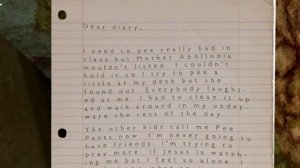 Dear diary,
I need to pee really bad in
class but Mother Apollonia
wouldn't listen. I couldn't
hold it so I try to pee a
little at my desk but she
found out. Everybody laught-
ed at me. I had to clean it up
and walk around in my under-
ware the rest of the day.
The other kids call me Pee
Pants now. I'm never going to
have friends. I'm trying to
pray more. If Jesus is watch-
ing me but I feel so alone.